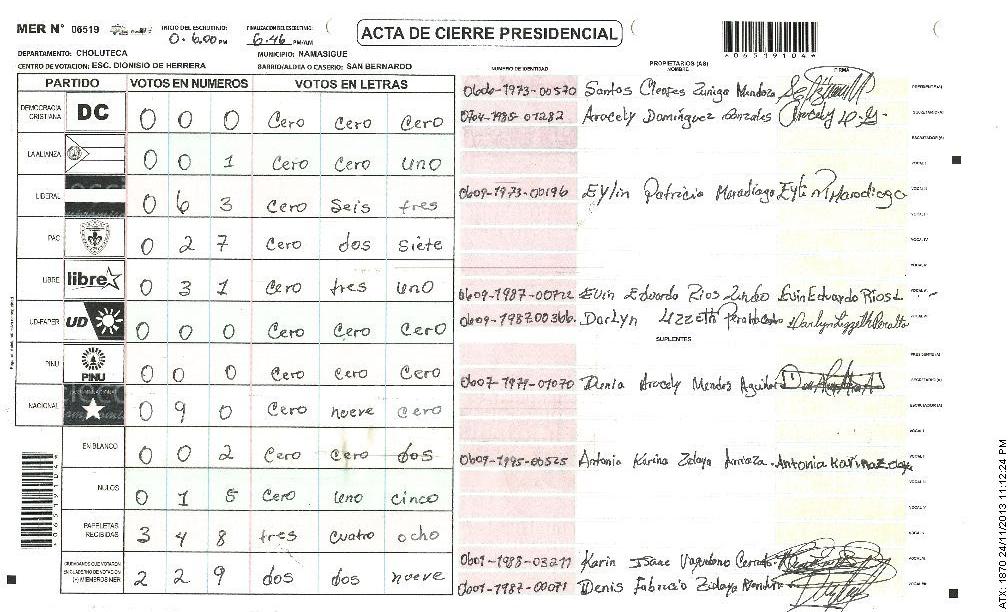 MER N° 06519
INICIO DEL ESCRUTINIO:
0-6:00 PM
FINALIZACION DEL ESCRUTINIO:
6:46 PM/AM
ACTA DE CIERRE PRESIDENCIAL
*06519104*
DEPARTAMENTO: CHOLUTECA
MUNICIPIO: NAMASIGUE
CENTRO DE VOTACION: ESC. DIONISIO DE HERRERA
BARRIO/ALDEA O CASERIO: SAN BERNARDO
PARTIDO VOTOS EN NUMEROS VOTOS EN LETRAS
DEMOCRACIA CRISTIANA DC 0 0 0 Cero Cero Cero
LA ALIANZA 0 0 1 Cero Cero uno
LIBERAL 0 6 3 Cero Seis tres
PAC 0 2 7 Cero dos siete
LIBRE libre 0 3 1 Cero tres uno
UD-FAPER UD 0 0 0 Cero Cero Cero
PINU PINU 0 0 0 Cero Cero Cero
NACIONAL 0 9 0 Cero nueve cero
EN BLANCO 0 0 2 Cero Cero dos
NULOS 0 1 5 Cero uno cinco
PAPELETAS RECIBIDAS 3 4 8 tres cuatro ocho
CIUDADANOS QUE VOTARON EN CUADERNO DE VOTACION (+) MIEMBROS MER 2 2 9 dos dos nueve
NUMERO DE IDENTIDAD PROPIETARIOS (AS) NOMBRE FIRMA
0606-1973-00570 Santos Cleofes Zuniga Mendoza PRESIDENTE (A)
0704-1985-01282 Aracely Dominguez Gonzales SECRETARIO (A)
ESCRUTADOR (A)
VOCAL I
0609-1973-00196 Eylin Patricia Maradiaga Eylin P Maradiaga VOCAL II
VOCAL III
VOCAL IV
VOCAL V
0609-1987-00722 Evin Eduardo Rios Evin Eduardo Rios L VOCAL VI
0609-1987-00366 Darlyn Lizzeth Peralta Darlyn Lizzeth Peralta VOCAL VII
SUPLENTES
PRESIDENTE (A)
0607-1979-01070 Denia Aracely Mendez Aguilera SECRETARIO (A)
ESCRUTADOR (A)
VOCAL I
0609-1995-00525 Antonia Karina Zelaya Antonia Karina Zelaya
0601-1988-03211 Karin
0601-1987-00071 Denis Fabricio Zelaya
*06519104*
ATX: 1870 24/11/2013 11:12:24 PM